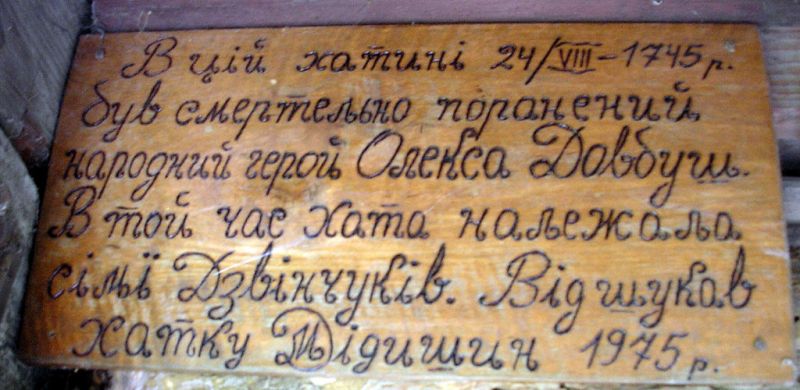 В цій хатині 24/VIII-1745р.
був смертельно поранений
народний герой Олекса Довбуш.
В той час хата належала
сімї Дзвінчуків. Відшукав
хатку Дідишин 1975р.